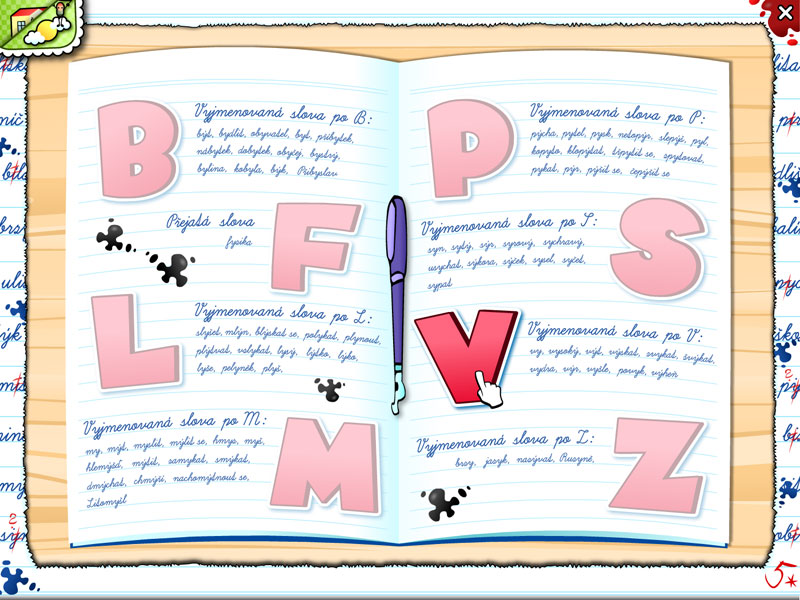 B
Vyjmenovaná slova po B:
být, bydlit, obyvatel, byt, příbytek,
nábytek, dobytek, obyčej, bystrý,
bylina, kobyla, býk, Přibyslav
Přejatá slova
fysika
F
L
Vyjmenovaná slova po L:
slyšet, mlýn, blýskat se, polykat, plynout,
plýtvat, vzlykat, lysý, lýtko, lýko,
lyže, pelyněk, plyš
M
Vyjmenovaná slova po M:
my, mýt, myslit, mýlit se, hmyz, myš,
hlemýžď, mýtit, zamykat, smýkat,
dmýchat, chmýří, nachomýtnout se,
Litomyšl
P
Vyjmenovaná slova po P:
pýcha, pytel, pysk, netopýr, slepýš, pyl,
kopyto, klopýtat, třpytit se, zpytovat,
pykat, pýr, pýřit se, čepýřit se
S
Vyjmenovaná slova po S:
syn, sytý, sýr, syrový, sychravý,
usychat, sýkora, sýček, sysel, syčet,
sypat
V
Vyjmenovaná slova po V:
vy, vysoký, výt, výskat, zvykat, žvýkat,
vydra, výr, vyžle, povyk, výheň
Z
Vyjmenovaná slova po Z:
brzy, jazyk, nazývat, Ruzyně,
5*